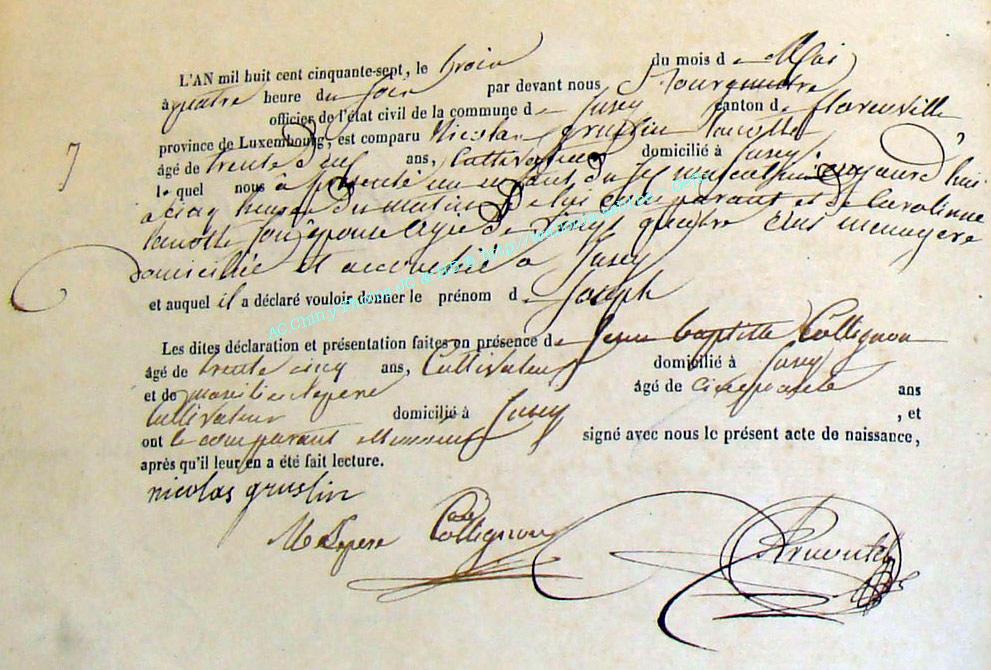 L'AN mil huit cent cinquante-sept, le trois du mois de Mai
à quatre heure du soir par devant nous
officier de l'état civil de la commune de Jusey canton de florenville
province de Luxembourg, est comparu Nicolas gruslin lanotte
âgé de trente deux ans, Cultivateur domicilié à Jusey
le quel nous à présenté un enfant du sexe masculin né aujourd'hui
à cinq heures du matin De lui comparant et de Carolinne
lanotte son epouse agée de vingt quatre ans menagere
domiciliée et accouchée à Jusey
et auquel il a déclaré vouloir donner le prénom de Joseph
Les dites déclaration et présentation faites en présence de Jean baptiste Collignon
âgé de trente cinq ans, Cultivateur domicilié à Jusey
et de lepere âgé de cinquante ans
Cultivateur domicilié à Jusey , et
ont le comparant et temoins signé avec nous le présent acte de naissance,
après qu'il leur en a été fait lecture.
nicolas gruslin
M Lepere Collignon